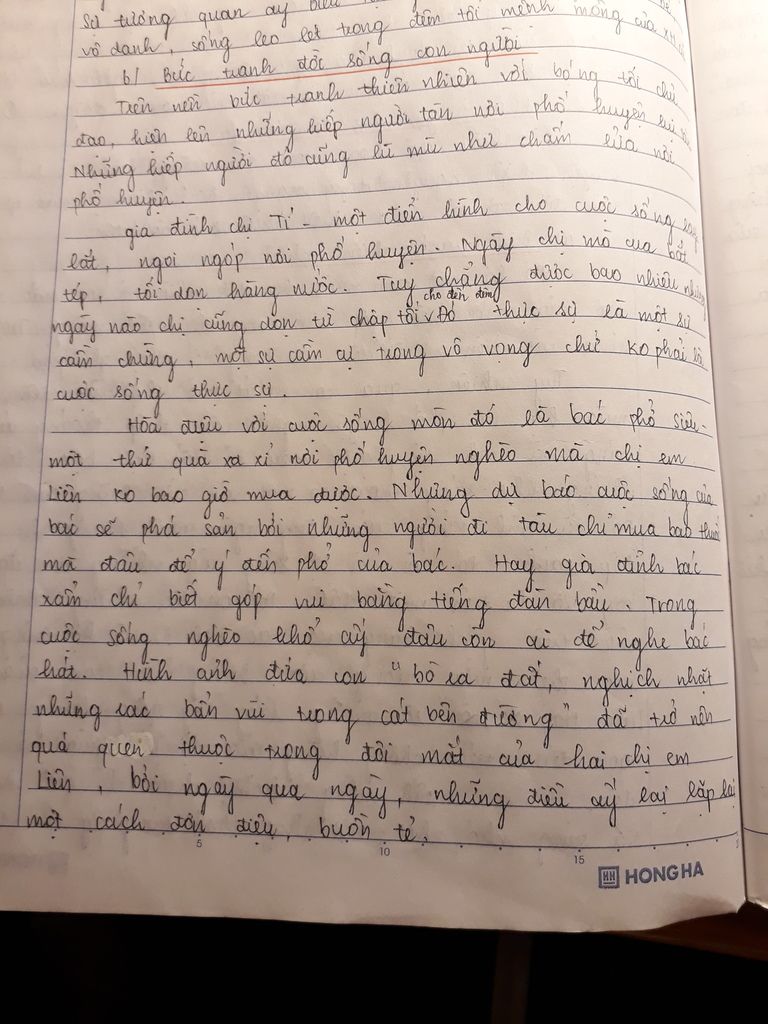 Sự tương quan ấy biểu
vô danh, sống leo lét trong đêm tối mênh mông của XH
b/ Bức tranh đời sống con người
Trên nền bức tranh thiên nhiên với bóng tối chủ
đạo, hiện lên những kiếp người tàn nơi phố huyện
Những kiếp người đó cũng lù mù như chấm lửa nơi
phố huyện.
gia đình chị Tí - một điển hình cho cuộc sống
lắt, ngoi ngóp nơi phố huyện. Ngày chị mò cua bắt
tép, tối dọn hàng nước. Tuy chẳng được bao nhiêu nhưng
ngày nào chị cũng dọn từ chập tối cho đến đêm. Đó thực sự là một sự
cầm chừng, một sự cần cù trong vô vọng chứ ko phải là
cuộc sống thực sự.
Hòa điệu với cuộc sống mòn đó là bác phở Siêu -
một thứ quà xa xỉ nơi phố huyện nghèo mà chị em
Liên ko bao giờ mua được. Những dự báo cuộc sống của
bác sẽ phá sản bởi những người đi tàu chỉ mua bao thuốc
mà đâu để ý đến phở của bác. Hay gia đình bác
xẩm chỉ biết góp vui bằng tiếng đàn bầu. Trong
cuộc sống nghèo khổ ấy đâu còn ai để nghe bác
hát. Hình ảnh đứa con "bò ra đất, nghịch nhặt
những rác bẩn vùi trong cát bên đường" đã trở nên
quá quen thuộc trong đôi mắt của hai chị em
Liên, bởi ngày qua ngày, những điều ấy lại lặp lại
một cách đơn điệu, buồn tẻ.
5 10 15
HH HONG HA